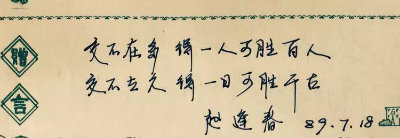 赠言
交不在多 得一人可胜百人
交不在久 得一日可胜千古
赵逢春 89.7.18